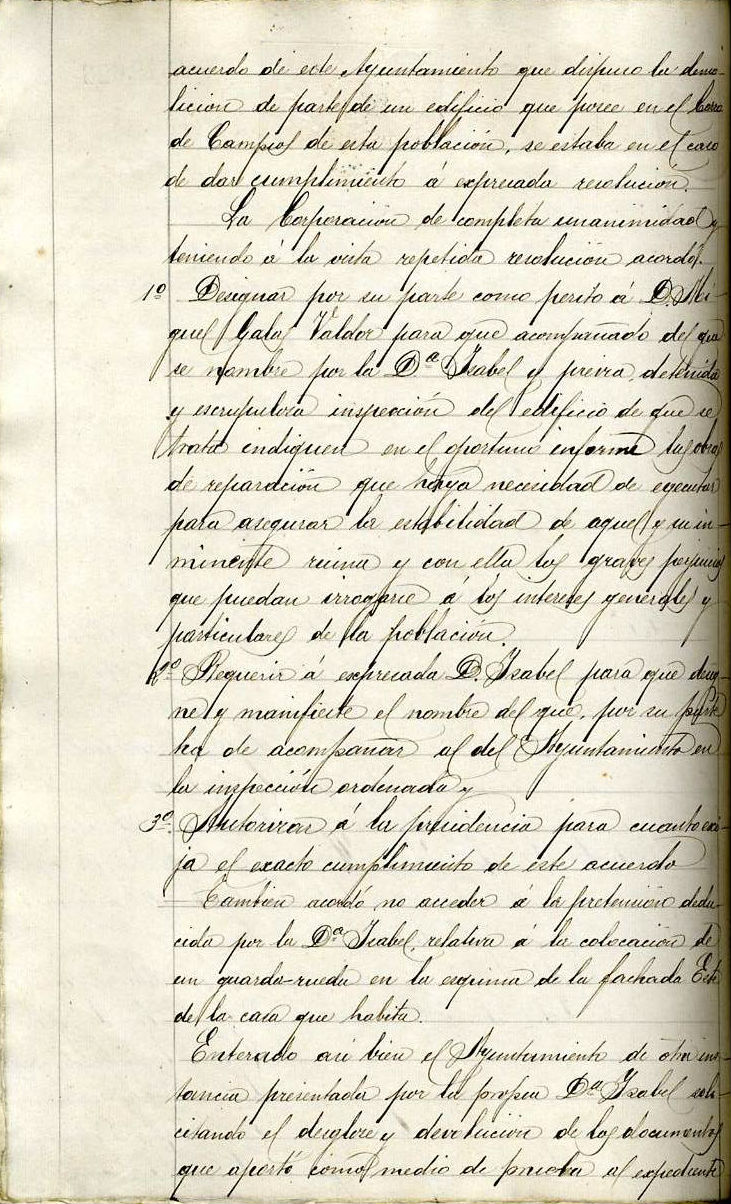 acuerdo de este Ayuntamiento que dispuso la demo-
licion de parte de un edificio que posee en el Corro
de Campios de esta población, se estaba en el caso
de dar cumplimiento á expresada resolución.
La Corporación de completa unanimidad y
teniendo á la vista repetida resolución acordó.
1º Designar por su parte como perito á D. Mi-
guel Galas Valdor para que acompañado del que
se nombre por la Dª Isabel y previa detenida
y escrupulosa inspección del edificio de que se
trata indiquen en el oportuno informe las obras
de reparación que haya necesidad de egecutar
para asegurar la estabilidad de aquel y su in-
minente ruina y con ella los graves perjuicios
que puedan irrogarse á los intereses generales y
particulares de la población.
2º Requerir á expresada D. Isabel para que desig-
ne y manifieste el nombre del que, por su parte
ha de acompañar al del Ayuntamiento en
la inspección ordenada y
3º Autorizar á la presidencia para cuanto exi-
ja el exacto cumplimiento de este acuerdo
Tambien acordó no acceder á la pretensión dedu-
cida por la Dª Isabel, relativa á la colocación de
un guarda-rueda en la esquina de la fachada Este
de la casa que habita.
Enterado asi bien el Ayuntamiento de otra ins-
tancia presentada por la propia Dª Isabel soli-
citando el desglose y devolución de los documentos
que aportó como medio de prueba al expediente